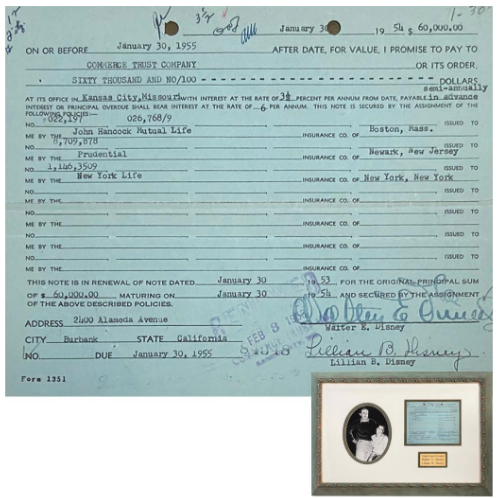 3½
1-30-
January 30 19 54 $ 60,000.00
ON OR BEFORE January 30, 1955 AFTER DATE, FOR VALUE, I PROMISE TO PAY TO
COMMERCE TRUST COMPANY OR ITS ORDER,
SIXTY THOUSAND AND NO/100 DOLLARS,
semi-annually
AT ITS OFFICE IN Kansas City, Missouri WITH INTEREST AT THE RATE OF 3½ PERCENT PER ANNUM FROM DATE, PAYABLE in advance
INTEREST OR PRINCIPAL OVERDUE SHALL BEAR INTEREST AT THE RATE OF 6 PER ANNUM. THIS NOTE IS SECURED BY THE ASSIGNMENT OF THE
FOLLOWING POLICIES—
NO. 022,197 026,768/9 ISSUED TO
ME BY THE John Hancock Mutual Life INSURANCE CO. OF Boston, Mass.
NO. 8,709,878 ISSUED TO
ME BY THE Prudential INSURANCE CO. OF Newark, New Jersey
NO. 1,146,3509 ISSUED TO
ME BY THE New York Life INSURANCE CO. OF New York, New York
NO. ISSUED TO
ME BY THE INSURANCE CO. OF
NO. ISSUED TO
ME BY THE INSURANCE CO. OF
NO. ISSUED TO
ME BY THE INSURANCE CO. OF
NO. ISSUED TO
ME BY THE INSURANCE CO. OF
THIS NOTE IS IN RENEWAL OF NOTE DATED January 30 19 53, FOR THE ORIGINAL PRINCIPAL SUM
OF $ 60,000.00 MATURING ON January 30 19 54 AND SECURED BY THE ASSIGNMENT
OF THE ABOVE DESCRIBED POLICIES.
FEB 8
Walter E. Disney
ADDRESS 2400 Alameda Avenue Walter E. Disney
CITY Burbank STATE California
Lillian B. Disney
NO. DUE January 30, 1955 Lillian B. Disney
Form 1351